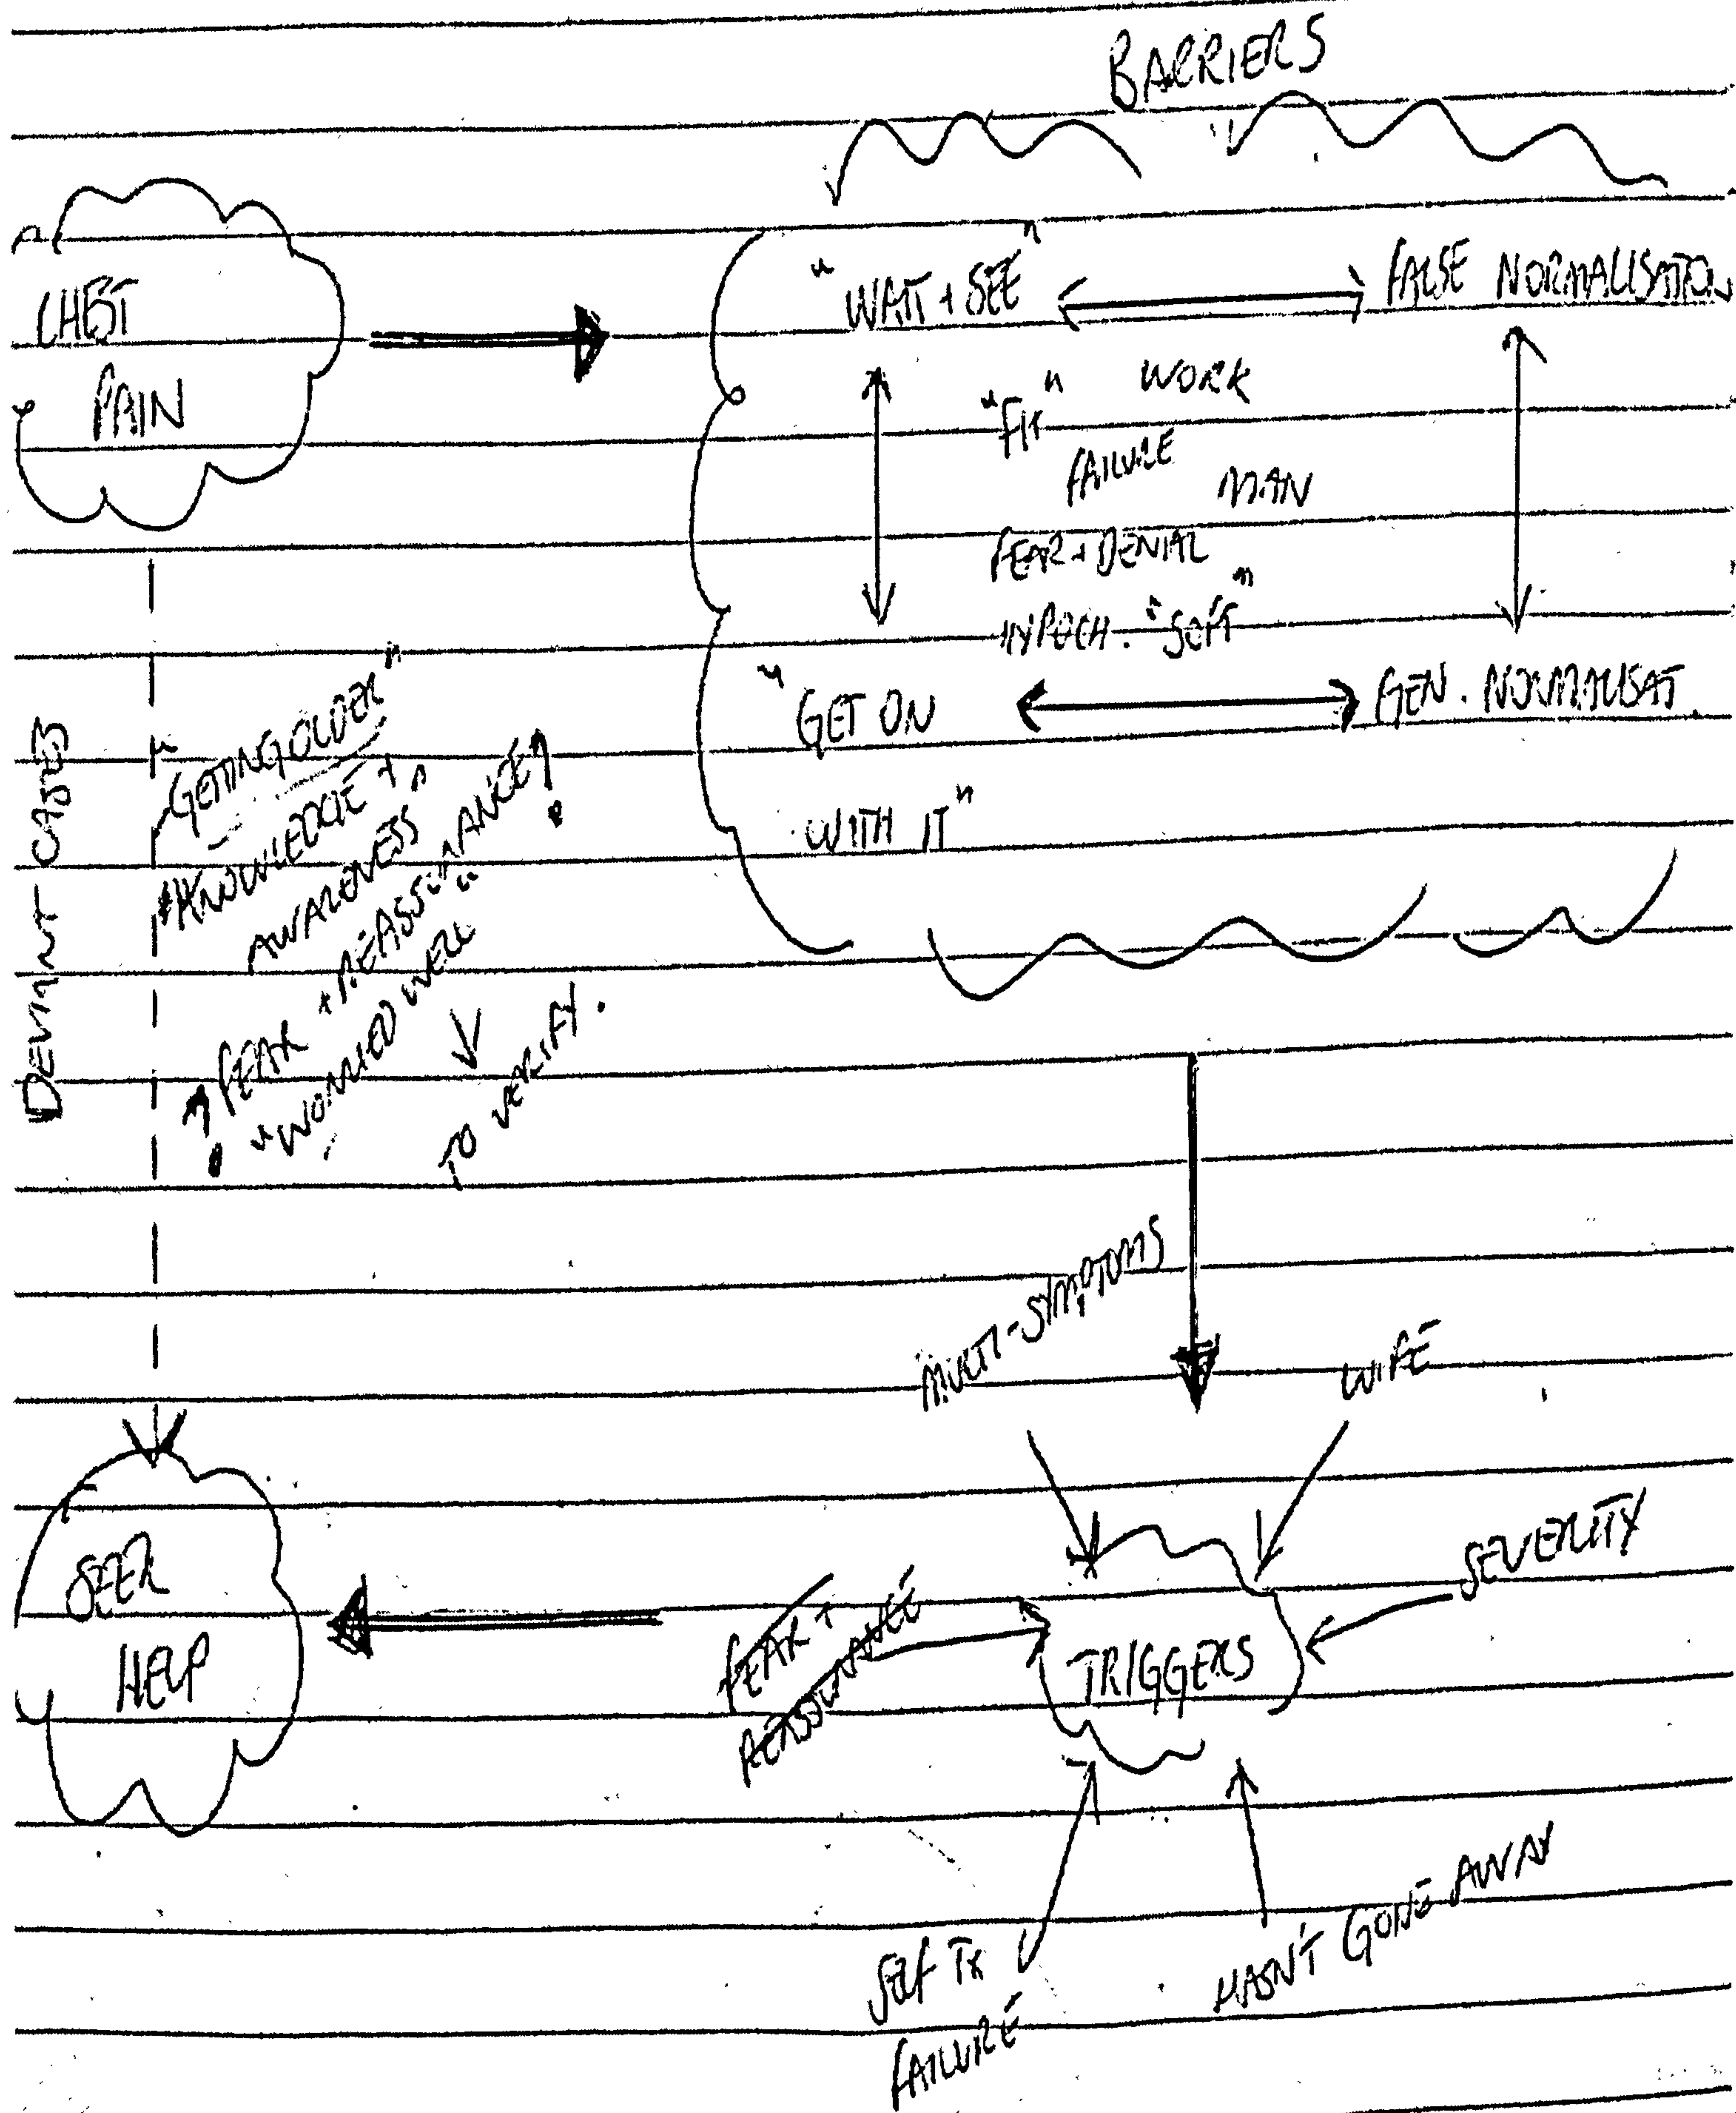 BARRIERS
CHEST
PAIN
"WAIT + SEE"
FALSE NORMALISATION
"FIT" WORK
FAILURE
MAN
FEAR + DENIAL
HYPOCH. "SOFT"
"GET ON
WITH IT"
GEN. NORMALISAT.
DEVIANT CASES
"GETTING OLDER"
"KNOWLEDGE +
AWARENESS"
? FEAR + REASSURANCE?
"WORRIED WELL"
TO VERIFY.
MULTI-SYMPTOMS
WIFE
SEVERITY
SEEK
HELP
FEAR +
REASSURANCE
TRIGGERS
SELF TX
FAILURE
HASN'T GONE AWAY